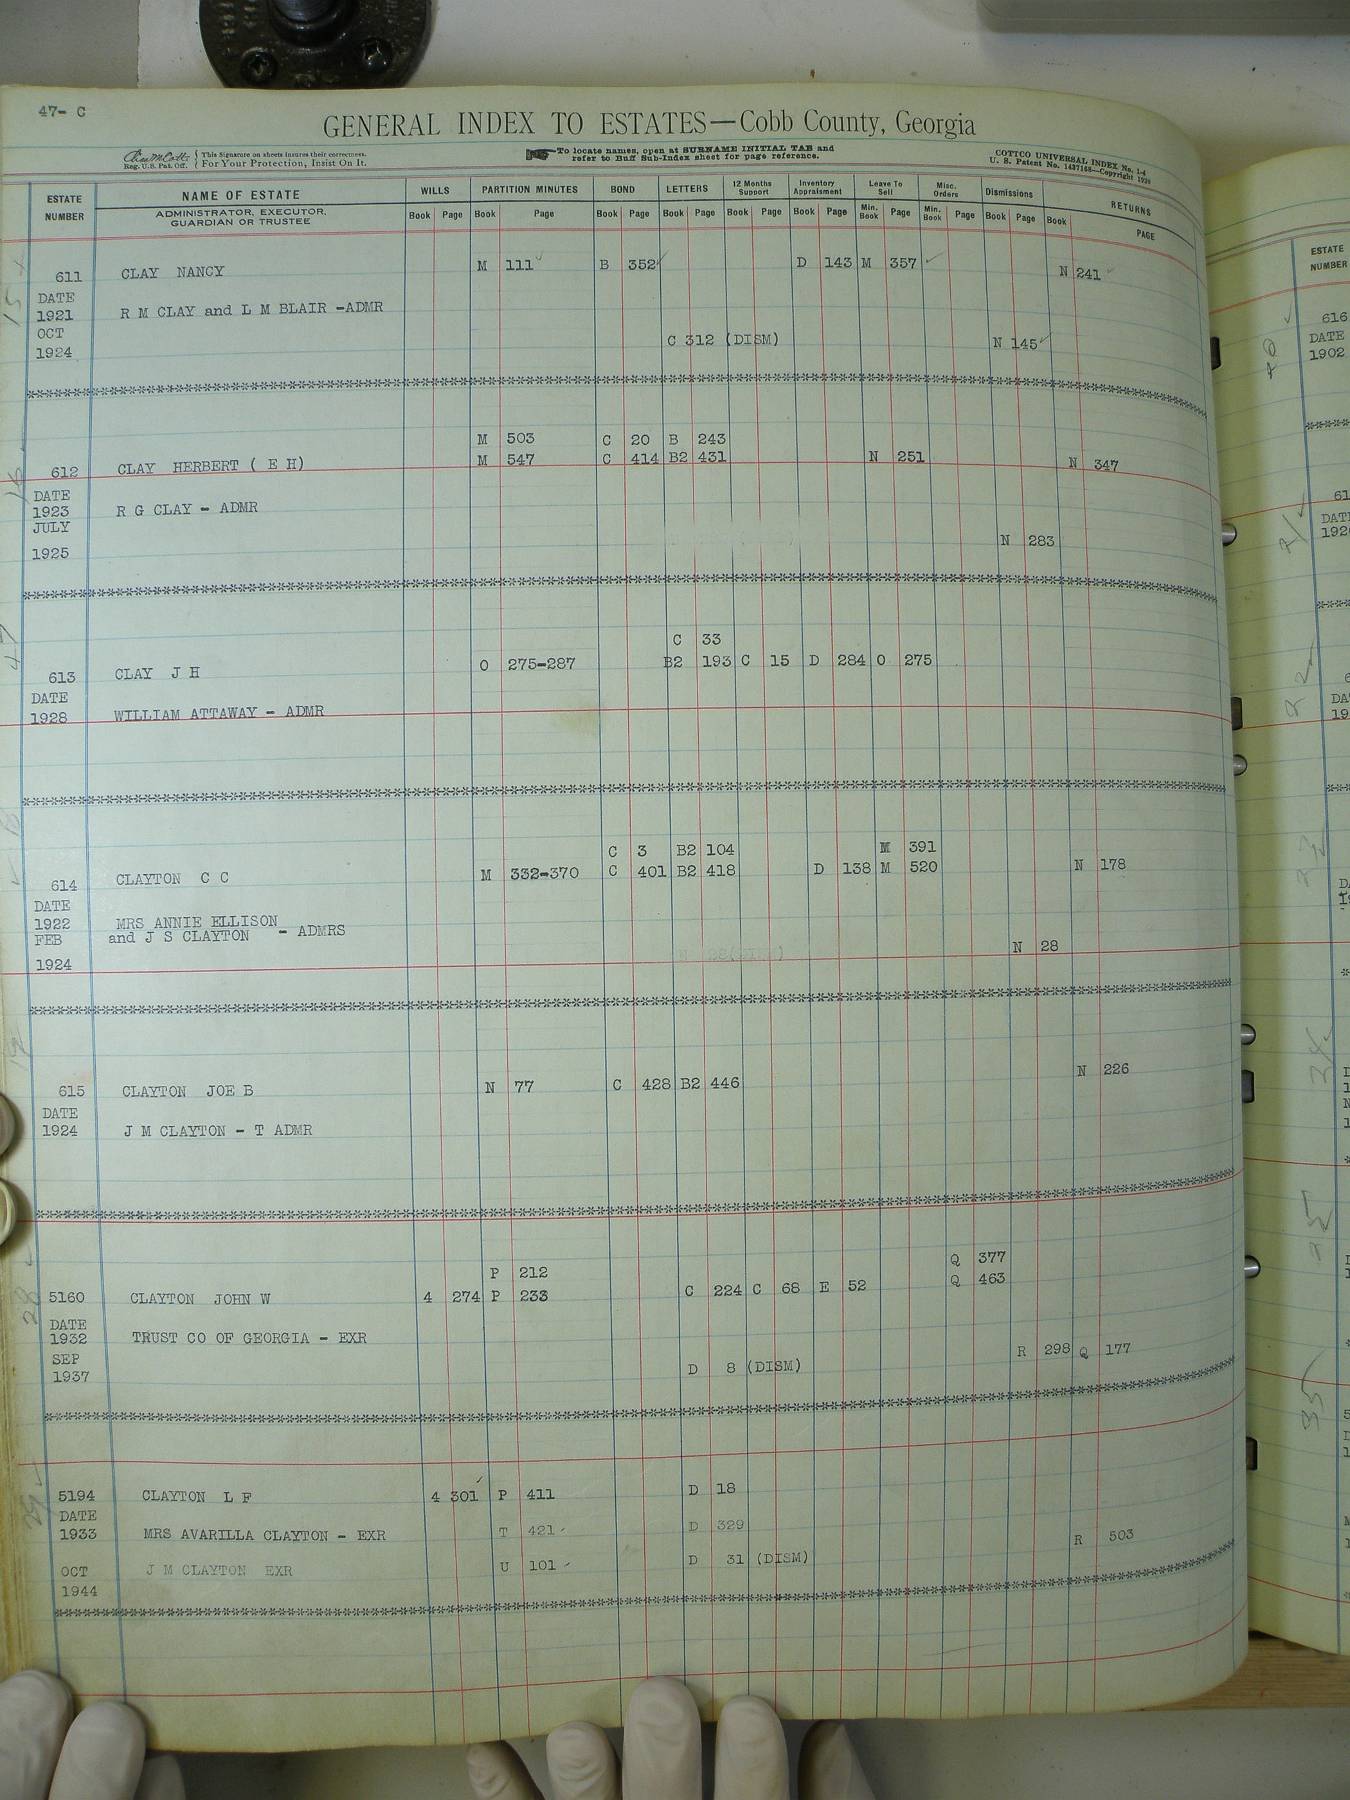 47- C
GENERAL INDEX TO ESTATES—Cobb County, Georgia
Reg. U.S. Pat. Off. { This Signature on sheets insures their correctness. For Your Protection, Insist On It.
To locate names, open at SURNAME INITIAL TAB and
refer to Buff Sub-Index sheet for page reference.
COTTCO UNIVERSAL INDEX No. 1-4
U. S. Patent No. 1437168—Copyright
ESTATE NUMBER NAME OF ESTATE WILLS PARTITION MINUTES BOND LETTERS 12 Months Support Inventory Appraisment Leave To Sell Misc. Orders Dismissions RETURNS
ADMINISTRATOR, EXECUTOR, GUARDIAN OR TRUSTEE Book Page Book Page Book Page Book Page Book Page Book Page Min. Book Page Min. Book Page Book Page Book PAGE
611 CLAY NANCY M 111 B 352 D 143 M 357 N 241
DATE
1921 R M CLAY and L M BLAIR -ADMR
OCT
C 312 (DISM) N 145
1924
M 503 C 20 B 243
612 CLAY HERBERT ( E H) M 547 C 414 B2 431 N 251 N 347
DATE
1923 R G CLAY - ADMR
JULY
N 283
1925
C 33
613 CLAY J H O 275-287 B2 193 C 15 D 284 O 275
DATE
1928 WILLIAM ATTAWAY - ADMR
C 3 B2 104 M 391
614 CLAYTON C C M 332-370 C 401 B2 418 D 138 M 520 N 178
DATE
1922 MRS ANNIE ELLISON
FEB and J S CLAYTON - ADMRS
N 28
1924
615 CLAYTON JOE B N 77 C 428 B2 446 N 226
DATE
1924 J M CLAYTON - T ADMR
P 212 Q 377
5160 CLAYTON JOHN W 4 274 P 233 C 224 C 68 E 52 Q 463
DATE
1932 TRUST CO OF GEORGIA - EXR
SEP R 298 Q 177
1937 D 8 (DISM)
5194 CLAYTON L F 4 301 P 411 D 18
DATE
1933 MRS AVARILLA CLAYTON - EXR T 421 D 329 R 503
OCT J M CLAYTON EXR U 101 D 31 (DISM)
1944
ESTATE
NUMBER
616
DATE
1902